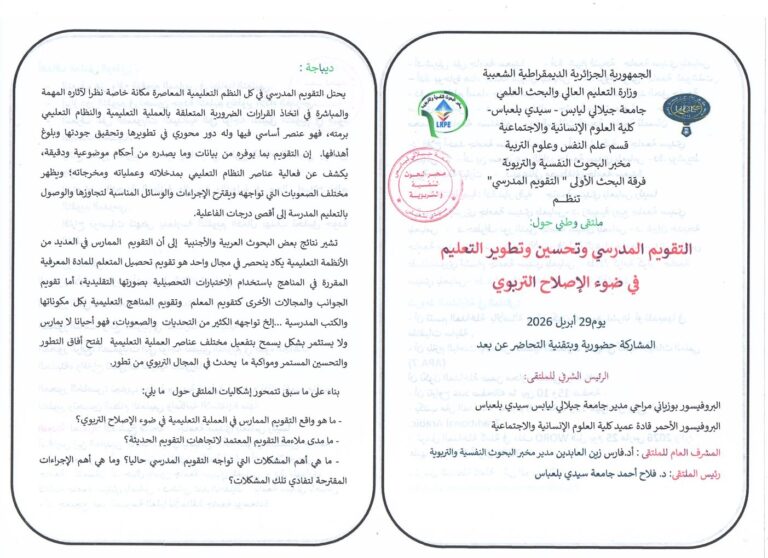 الجمهورية الجزائرية الديمقراطية الشعبية
وزارة التعليم العالي والبحث العلمي
جامعة جيلالي ليابس - سيدي بلعباس-
كلية العلوم الإنسانية والاجتماعية
قسم علم النفس وعلوم التربية
مخبر البحوث النفسية والتربوية
فرقة البحث الأولى " التقويم المدرسي"
تنظـم
LRPE
مخبر البحوث
النفسية
والتربوية
ملتقى وطني حول:
التقويم المدرسي وتحسين وتطوير التعليم
في ضوء الإصلاح التربوي
يوم29 أبريل 2026
المشاركة حضورية وبتقنية التحاضر عن بعد
الرئيس الشرفي للملتقى:
البروفيسور بوزياني مراحي مدير جامعة جيلالي ليابس سيدي بلعباس
البروفيسور الأحمر قادة عميد كلية العلوم الإنسانية والاجتماعية
المشرف العام للملتقى : أ.د.فارس زين العابدين مدير مخبر البحوث النفسية والتربوية
رئيس الملتقى: د. فلاح أحمد جامعة سيدي بلعباس
ديباجة :
يحتل التقويم المدرسي في كل النظم التعليمية المعاصرة مكانة خاصة نظرا لآثاره المهمة
والمباشرة في اتخاذ القرارات الضرورية المتعلقة بالعملية التعليمية والنظام التعليمي
برمته، فهو عنصر أساسي فيها وله دور محوري في تطويرها وتحقيق جودتها وبلوغ
أهدافها. إن التقويم بما يوفره من بيانات وما يصدره من أحكام موضوعية ودقيقة،
يكشف عن فعالية عناصر النظام التعليمي بمدخلاته وعملياته ومخرجاته؛ ويظهر
مختلف الصعوبات التي تواجهه ويقترح الإجراءات والوسائل المناسبة لتجاوزها والوصول
بالتعليم المدرسة إلى أقصى درجات الفاعلية.
تشير نتائج بعض البحوث العربية والأجنبية إلى أن التقويم الممارس في العديد من
الأنظمة التعليمية يكاد ينحصر في مجال واحد هو تقويم تحصيل المتعلم للمادة المعرفية
المقررة في المناهج باستخدام الاختبارات التحصيلية بصورتها التقليدية، أما تقويم
الجوانب والمجالات الأخرى كتقويم المعلم وتقويم المناهج التعليمية بكل مكوناتها
والكتب المدرسية ...إلخ تواجهه الكثير من التحديات والصعوبات، فهو أحيانا لا يمارس
ولا يستثمر بشكل يسمح بتفعيل مختلف عناصر العملية التعليمية لفتح آفاق التطور
والتحسين المستمر ومواكبة ما يحدث في المجال التربوي من تطور.
بناء على ما سبق تتمحور إشكاليات الملتقى حول ما يلي:
- ما هو واقع التقويم الممارس في العملية التعليمية في ضوء الإصلاح التربوي؟
- ما مدى ملاءمة التقويم المعتمد لاتجاهات التقويم الحديثة؟
- ما هي أهم المشكلات التي تواجه التقويم المدرسي حاليا؟ وما هي أهم الإجراءات
المقترحة لتفادي تلك المشكلات؟